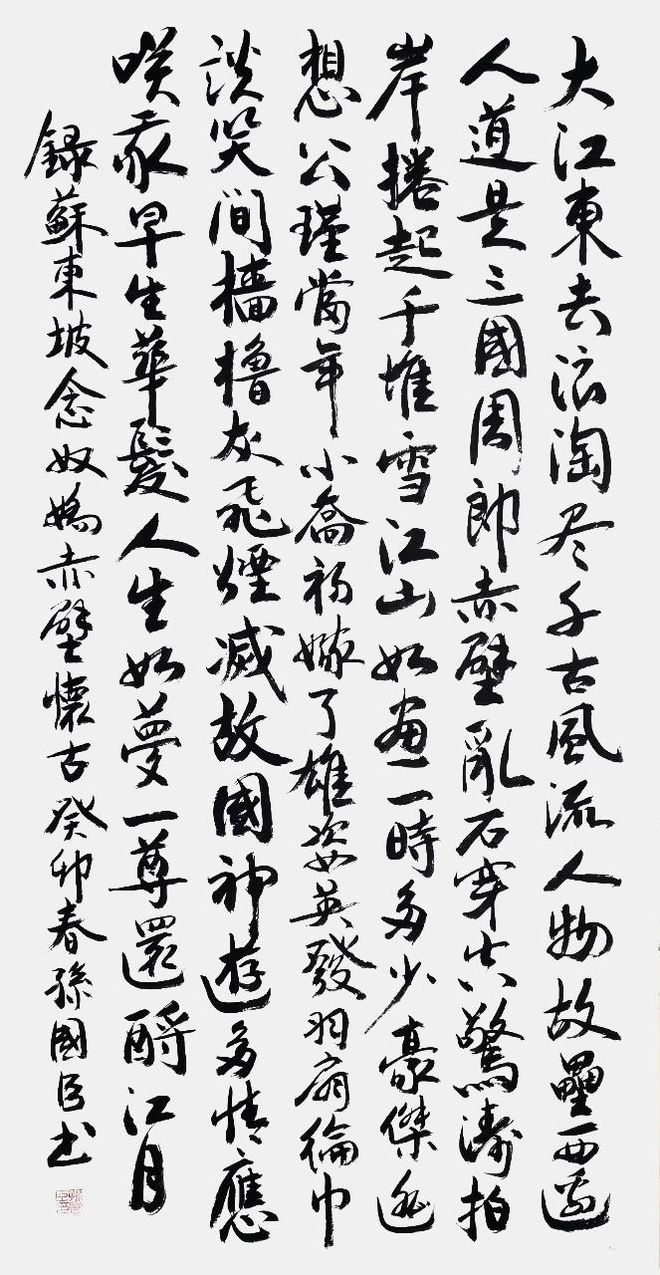 大江東去浪淘尽千古風流人物故壘西邊
人道是三國周郎赤壁亂石穿空驚濤拍
岸捲起千堆雪江山如畫一時多少豪傑遥
想公瑾當年小喬初嫁了雄姿英發羽扇綸巾
談笑間檣櫓灰飛煙滅故國神遊多情應
咲我早生華髮人生如夢一尊還酹江月
録蘇東坡念奴嬌赤壁懷古癸卯春孫國臣书